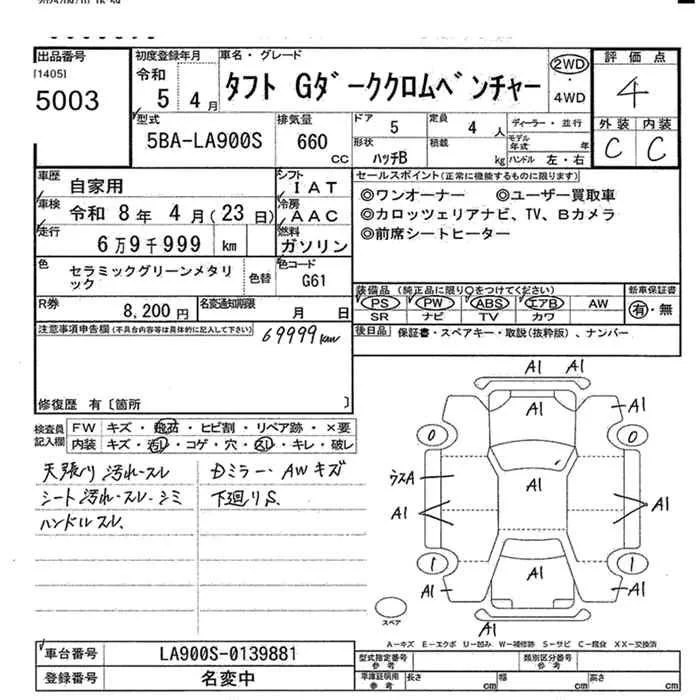 出品番号
[1405]
5003
初度登録年月
令和
5 4 月
車名・グレード
タフト Gダーククロムベンチャー
2WD
・
4WD
評価点
4
外装 内装
C C
型式
5BA-LA900S
排気量
660
CC
ドア 5
定員 4 人
形状 ハッチB
積載 kg
ディーラー・並行
モデル年式 年
ハンドル 左・右
車歴 自家用
車検 令和 8年 4月(23日)
走行 6万9千999 km
シフト IAT
冷房 AAC
燃料 ガソリン
色 セラミックグリーンメタリック
色替
色コード G61
R券 8,200円
名変通知期限 月 日
セールスポイント(正常に機能するものに限ります)
◎ワンオーナー ◎ユーザー買取車
◎カロッツェリアナビ、TV、Bカメラ
◎前席シートヒーター
装備品 (純正品に限り○をつけてください)
PS PW ABS エアB AW
SR ナビ TV カワ
新車保証書
有・無
後日品 保証書・スペアキー・取説(抜粋版)、ナンバー
注意事項申告欄(不具合内容等は具体的に記入して下さい)
69999km
修復歴 有〔箇所 〕
検査員記入欄
FW キズ・飛石・ヒビ割・リペア跡・×要
内装 キズ・汚レ・コゲ・穴・スレ・キレ・破レ
天張り 汚れ・スレ
シート 汚れ・スレ・シミ
ハンドルスレ、
Dミラー・AWキズ
下廻りS.
A1 A1
A1
A1
0 0
A1
ウスA
A1
A1
1 1
A1
A1
A1
A1
スペア
A-キズ E-エクボ U-凹み W-補修跡 S-サビ C-腐食 XX-交換済
車台番号 LA900S-0139881
登録番号 名変中
型式指定番号 参考
類別区分番号 参考
車庫証明用 参考
長さ cm
幅 cm
高さ cm